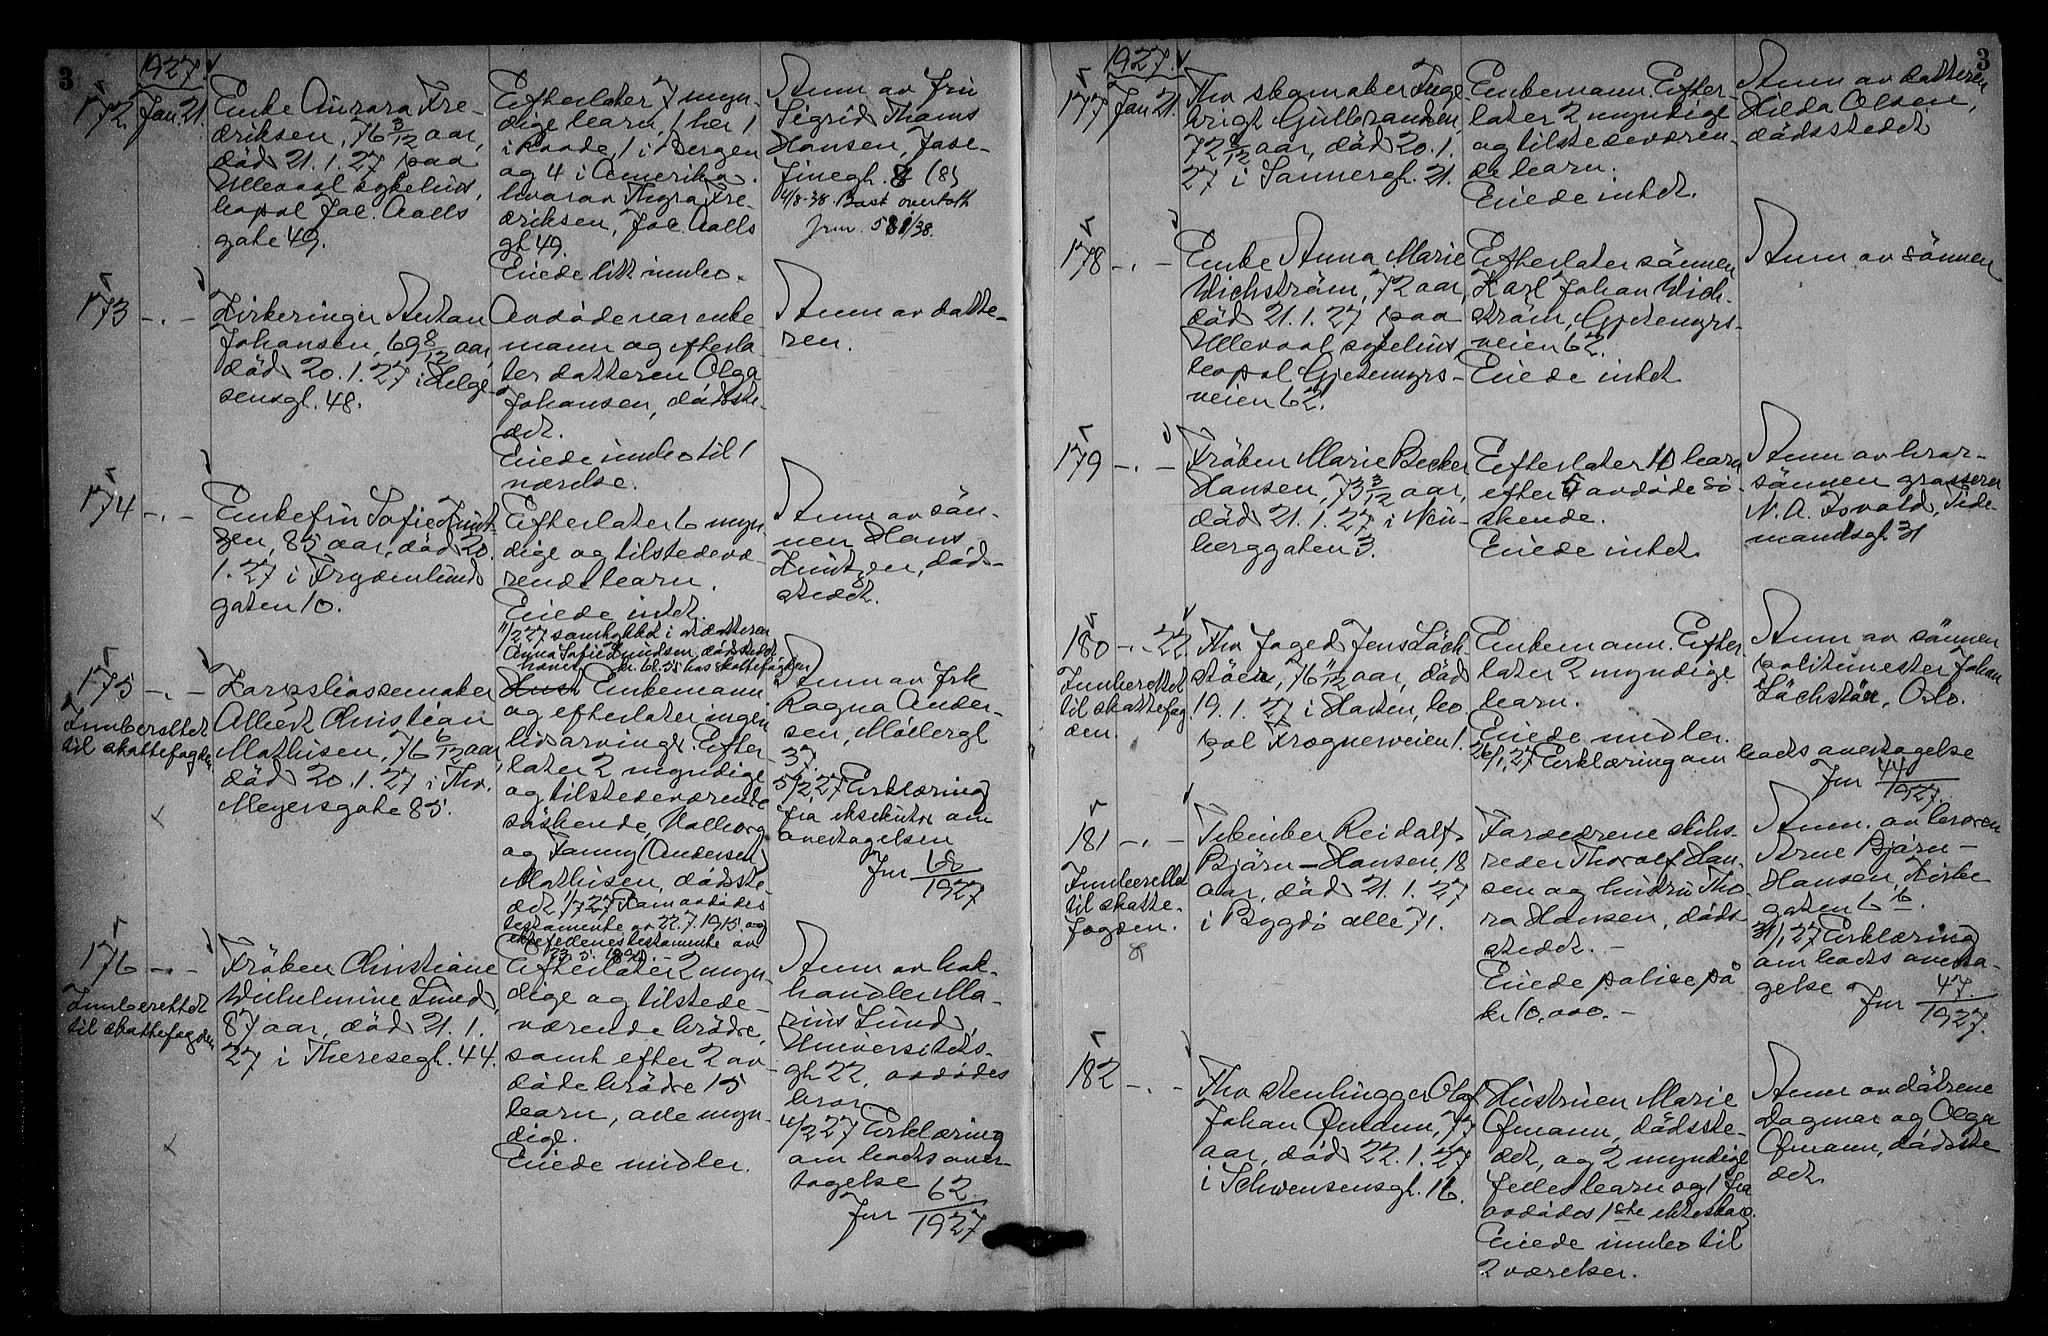 3
1927.
172
Jan. 21.
Enke Aurora Fre-
driksen, 76 3/12 aar,
död 21.1.27 paa
Ullevaal sykehus,
bopal Jac. Aalls
gate 49.
Efterlater 7 myn-
dige barn, 1 her 1
i Raade, 1 i Bergen
og 4 i Amerika.
hvorav Thyra Fre-
driksen, Jac. Aalls
gt. 49.
Eiede litt innbo.
Anm av fru
Sigrid Thoms
Hansen, Jose-
finegt. 8 (8)
4/8-38. Bost overtatt
Jrnr. 581/38.
173
-.-
Zirkeringer Anton
Johansen, 69 8/12 aar,
död 20.1.27 i Helge-
sensgt. 48.
Avdöde var enke-
mann og efterla-
ter datteren Olga
Johansen, dödste-
det.
Eiede innbo til 1
værelse.
Anm av datte-
ren.
174
-.-
Enkefru Sofie Knut-
zen, 85 aar, död 20.
1.27 i Frydenlunds
gaten 10.
Efterlater 6 myn-
dige og tilstedevæ-
rende barn.
Eiede intet.
11/2 27 samtykket i at datteren
Anna Sofie Knudsen, dödstedet
hever kr. 68.55 hos skattefogden
Anm av sön-
nen Hans
Knutzen, död-
stedet.
175
-.-
Innberettet
til skattefogden
Korpsbössemaker
Albert Christian
Mathisen, 76 6/12 aar,
död 20.1.27 i Thv.
Meyersgate 85.
Enkemann
og efterlater ingen
livsarvinger. Efter-
later 2 myndige
og tilstedeværende
söskende, Valborg
og Fanny (Andersen)
Mathisen, dödste-
det. 1/7 27 Fram avdödes
testamente av 22.7.1915 og
ektefellenes testamente av
23.5.1891
Anm av frk
Ragna Ander-
sen, Möllergt
37.
5/2 27 Erklæring
fra eksekutor om
overtagelsen
Jnr 68/1927
176
-.-
Innberettet
til skattefogden
Fröken Christiane
Wilhelmine Lund,
87 aar, död 21.1.
27 i Theresegt. 44.
Efterlater 2 myn-
dige og tilstede-
værende brödre,
samt efter 2 av-
döde brödre 15
barn, alle myn-
dige.
Eiede midler.
Anm av bok-
handler Ma-
rius Lund,
Universitets-
gt. 22, avdödes
bror
4/2 27 Erklæring
om boets over-
tagelse
Jnr 62/1927
3
1927.
177
Jan 21.
Fhv skomaker Inge-
brigt Gulbrandsen,
72 8/12 aar, död 20.1.
27 i Sannergt. 21.
Enkemann. Efter-
later 2 myndige
og tilstedeværen-
de barn.
Eiede intet.
Anm av datteren
Hilda Olsen,
dödsstedet
178
-.-
Enke Anna Marie
Wichström, 72 aar,
död 21.1.27 paa
Ullevaal sykehus,
bopal Gjetemyrs-
veien 62.
Efterlater sönnen
Karl Johan Wich-
ström, Gjetemyrs-
veien 62.
Eiede intet
Anm av sönnen
179
-.-
Fröken Marie Becker
Hansen, 73 3/12 aar,
död 21.1.27 i Neu-
berggaten 3.
Efterlater 11 barn
efter 5 avdöde sö-
skende.
Eiede intet
Anm av bror-
sönnen grosserer
N. A. Isvald, Tide-
mandsgt. 31
180
-.- 22
Innberettet
til skattefog-
den.
Fhv foged Jens Löch-
stöer, 76 11/12 aar, död
19.1.27 i Hosten, bo-
pal Frognerveien 1.
Enkemann. Efter-
later 2 myndige
barn.
Eiede midler.
26/1.27 Erklæring om boets overtagelse
Jnr 44/1927
Anm av sönnen
politimester Johan
Löchstöer, Oslo.
181
-.-
Innberettet
til skatte-
fogden.
Tekniker Reidolf
Bjørn-Hansen, 18
aar, död 21.1.27
i Bygdö alle 71.
Forældrene skibs-
reder Thoralf Han-
sen og hustru Tho-
ra Hansen, död-
stedet.-
Eiede police på
kr 10,000.-
Anm. av broren
Arne Bjørn-
Hansen, Kirke
gaten 6 b.
31/1.27 Erklæring
om boets overta-
gelse
Jnr 47/1927.
182
-.-
Fhv stenhugger Olaf
Johan Ømann, 77
aar, död 22.1.27
i Schwensensgt. 16.
Hustruen Marie
Ømann, dödsste-
det, og 2 myndige
fellesbarn og 1 fra
avdödes 1ste ekteskap.
Eiede innbo til
2 værelser.
Anm av dötrene
Dagmar og Olga
Ømann, dödsste
det